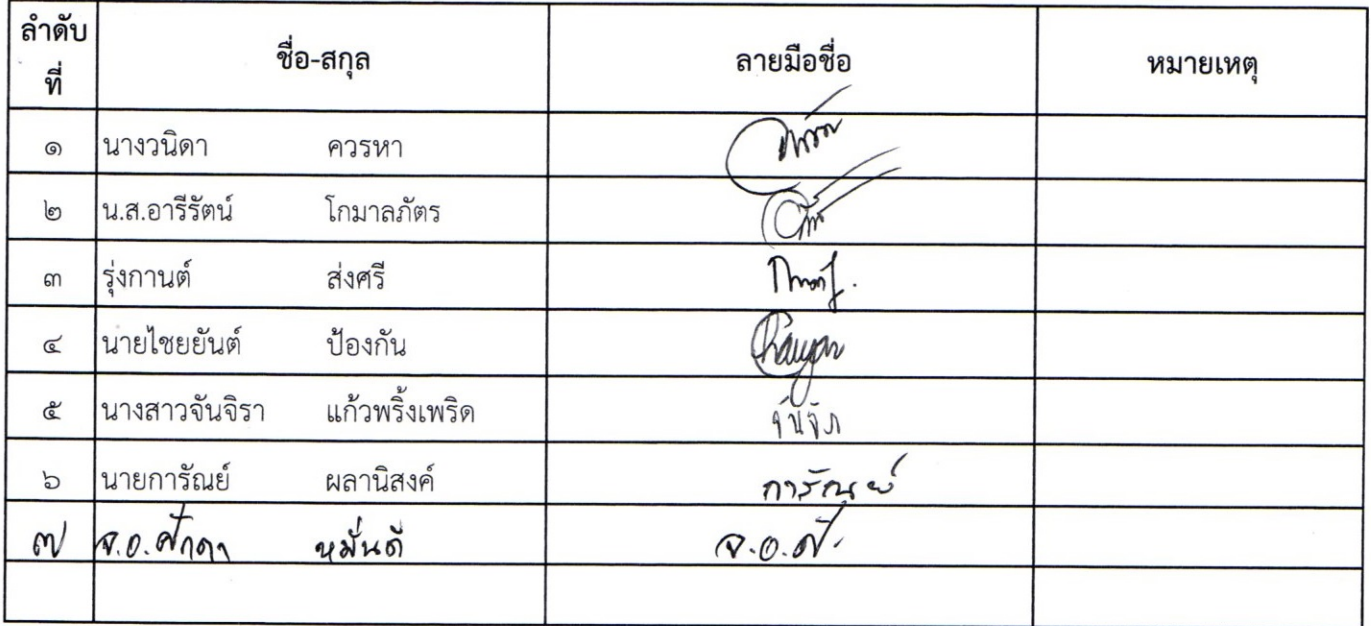 ลำดับที่ ชื่อ-สกุล ลายมือชื่อ หมายเหตุ
๑ นางวนิดา ควรหา
๒ น.ส.อารีรัตน์ โกมาลภัตร
๓ รุ่งกานต์ ส่งศรี
๔ นายไชยยันต์ ป้องกัน
๕ นางสาวจันจิรา แก้วพริ้งเพริด จันจิรา
๖ นายการัณย์ ผลานิสงค์ การัณย์
๗ จ.อ.ศักดา หมั่นดี จ.อ.ศ.